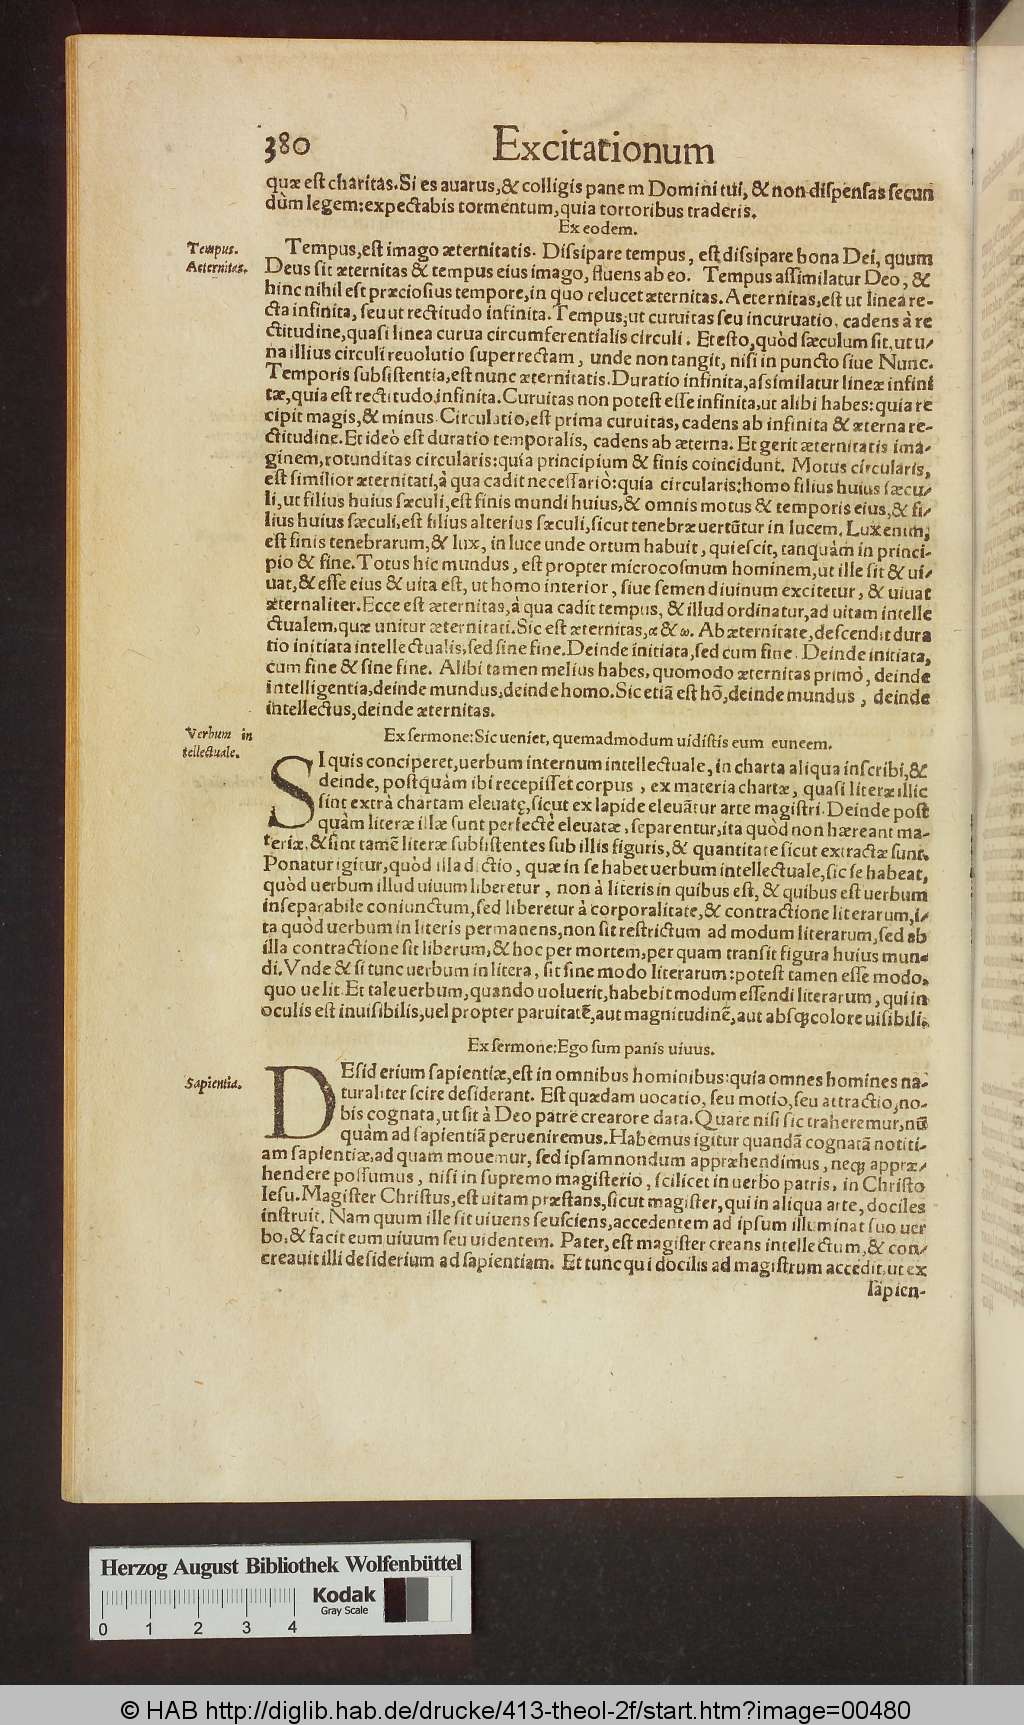 380 Excitationum
quæ est charitas. Si es auarus, & colligis pane m Domini tui, & non dispensas secun
dùm legem: expectabis tormentum, quia tortoribus traderis.
Ex eodem.
Tempus.
Aeternitas.
Tempus, est imago æternitatis. Dissipare tempus, est dissipare bona Dei, quum
Deus sit æternitas & tempus eius imago, fluens ab eo. Tempus assimilatur Deo, &
hinc nihil est præciosius tempore, in quo relucet æternitas. Aeternitas, est ut linea re-
cta infinita, seu ut rectitudo infinita. Tempus, ut curuitas seu incuruatio, cadens à re
ctitudine, quasi linea curua circumferentialis circuli. Et esto, quòd sæculum sit, ut u-
na illius circuli reuolutio super rectam, unde non tangit, nisi in puncto siue Nunc.
Temporis subsistentia, est nunc æternitatis. Duratio infinita, assimilatur lineæ infini
tæ, quia est rectitudo infinita. Curuitas non potest esse infinita, ut alibi habes: quia re
cipit magis, & minus. Circulatio, est prima curuitas, cadens ab infinita & æterna re-
ctitudine. Et ideò est duratio temporalis, cadens ab æterna. Et gerit æternitatis ima-
ginem, rotunditas circularis: quia principium & finis coincidunt. Motus circularis,
est similior æternitati, à qua cadit necessariò: quia circularis: homo filius huius sæcu-
li, ut filius huius sæculi, est finis mundi huius, & omnis motus & temporis eius, & fi-
lius huius sæculi, est filius alterius sæculi, sicut tenebræ uertũtur in lucem. Lux enim,
est finis tenebrarum, & lux, in luce unde ortum habuit, quiescit, tanquàm in princi-
pio & fine. Totus hic mundus, est propter microcosmum hominem, ut ille sit & ui-
uat, & esse eius & uita est, ut homo interior, siue semen diuinum excitetur, & uiuat
æternaliter. Ecce est æternitas, à qua cadit tempus, & illud ordinatur, ad uitam intelle
ctualem, quæ unitur æternitati. Sic est æternitas, α & ω. Ab æternitate, descendit dura
tio initiata intellectualis, sed sine fine. Deinde initiata, sed cum fine. Deinde initiata,
cum fine & sine fine. Alibi tamen melius habes, quomodo æternitas primò, deinde
intelligentia, deinde mundus, deinde homo. Sic etiã est hõ, deinde mundus, deinde
intellectus, deinde æternitas.
Verbum in
tellectuale.
Ex sermone: Sic ueniet, quemadmodum uidistis eum euntem.
SI quis conciperet, uerbum internum intellectuale, in charta aliqua inscribi, &
deinde, postquàm ibi recepisset corpus, ex materia chartæ, quasi literæ illic
sint extrà chartam eleuatę, sicut ex lapide eleuãtur arte magistri. Deinde post
quàm literæ illæ sunt perfectè eleuatæ, separentur, ita quòd non hæreant ma-
teriæ, & sint tamẽ literæ subsistentes sub illis figuris, & quantitate sicut extractæ sunt.
Ponatur igitur, quòd illa dictio, quæ in se habet uerbum intellectuale, sic se habeat,
quòd uerbum illud uiuum liberetur, non à literis in quibus est, & quibus est uerbum
inseparabile coniunctum, sed liberetur à corporalitate, & contractione literarum, i-
ta quòd uerbum in literis permanens, non sit restrictum ad modum literarum, sed ab
illa contractione sit liberum, & hoc per mortem, per quam transit figura huius mun-
di. Vnde & si tunc uerbum in litera, sit sine modo literarum: potest tamen esse modo,
quo uelit. Et tale uerbum, quando uoluerit, habebit modum essendi literarum, qui in
oculis est inuisibilis, uel propter paruitatẽ, aut magnitudinẽ, aut absq; colore uisibili.
Ex sermone: Ego sum panis uiuus.
Sapientia.
DEsiderium sapientiæ, est in omnibus hominibus: quia omnes homines na-
turaliter scire desiderant. Est quædam uocatio, seu motio, seu attractio, no-
bis cognata, ut sit à Deo patre creatore data. Quare nisi sic traheremur, nũ
quàm ad sapientiã perueniremus. Habemus igitur quandã cognatã notiti-
am sapientiæ, ad quam mouemur, sed ipsam nondum appræhendimus, neq; appræ-
hendere possumus, nisi in supremo magisterio, scilicet in uerbo patris, in Christo
Iesu. Magister Christus, est uitam præstans, sicut magister, qui in aliqua arte, dociles
instruit. Nam quum ille sit uiuens seu sciens, accedentem ad ipsum illuminat suo uer
bo, & facit eum uiuum seu uidentem. Pater, est magister creans intellectum, & con-
creauit illi desiderium ad sapientiam. Et tunc qui docilis ad magistrum accedit, ut ex
sapien-
Herzog August Bibliothek Wolfenbüttel
Kodak
Gray Scale
0 1 2 3 4
© HAB http://diglib.hab.de/drucke/413-theol-2f/start.htm?image=00480